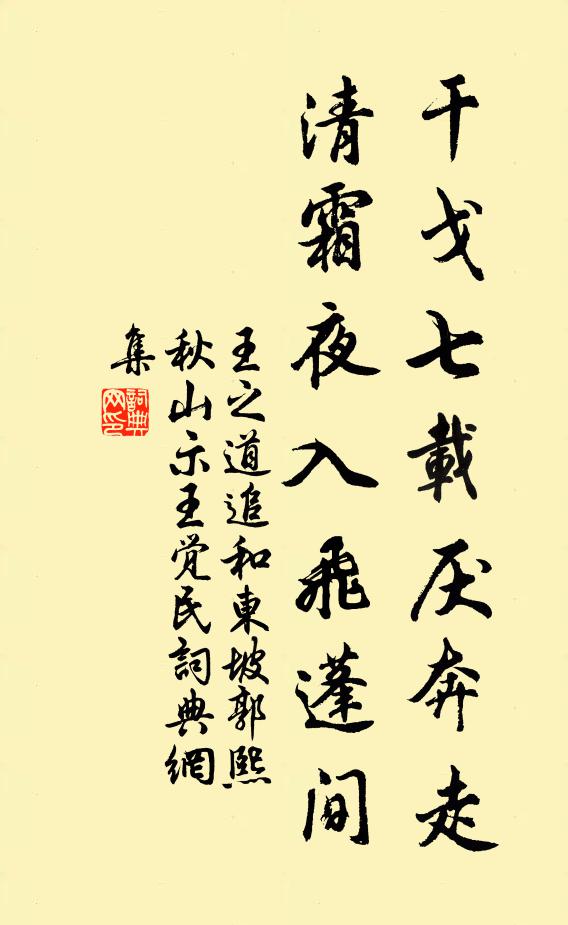 干戈七載厌奔走
清霜夜入飛蓬間
王之道追和東坡郭熙
秋山示王觉民詞典網
集
詞典
网印